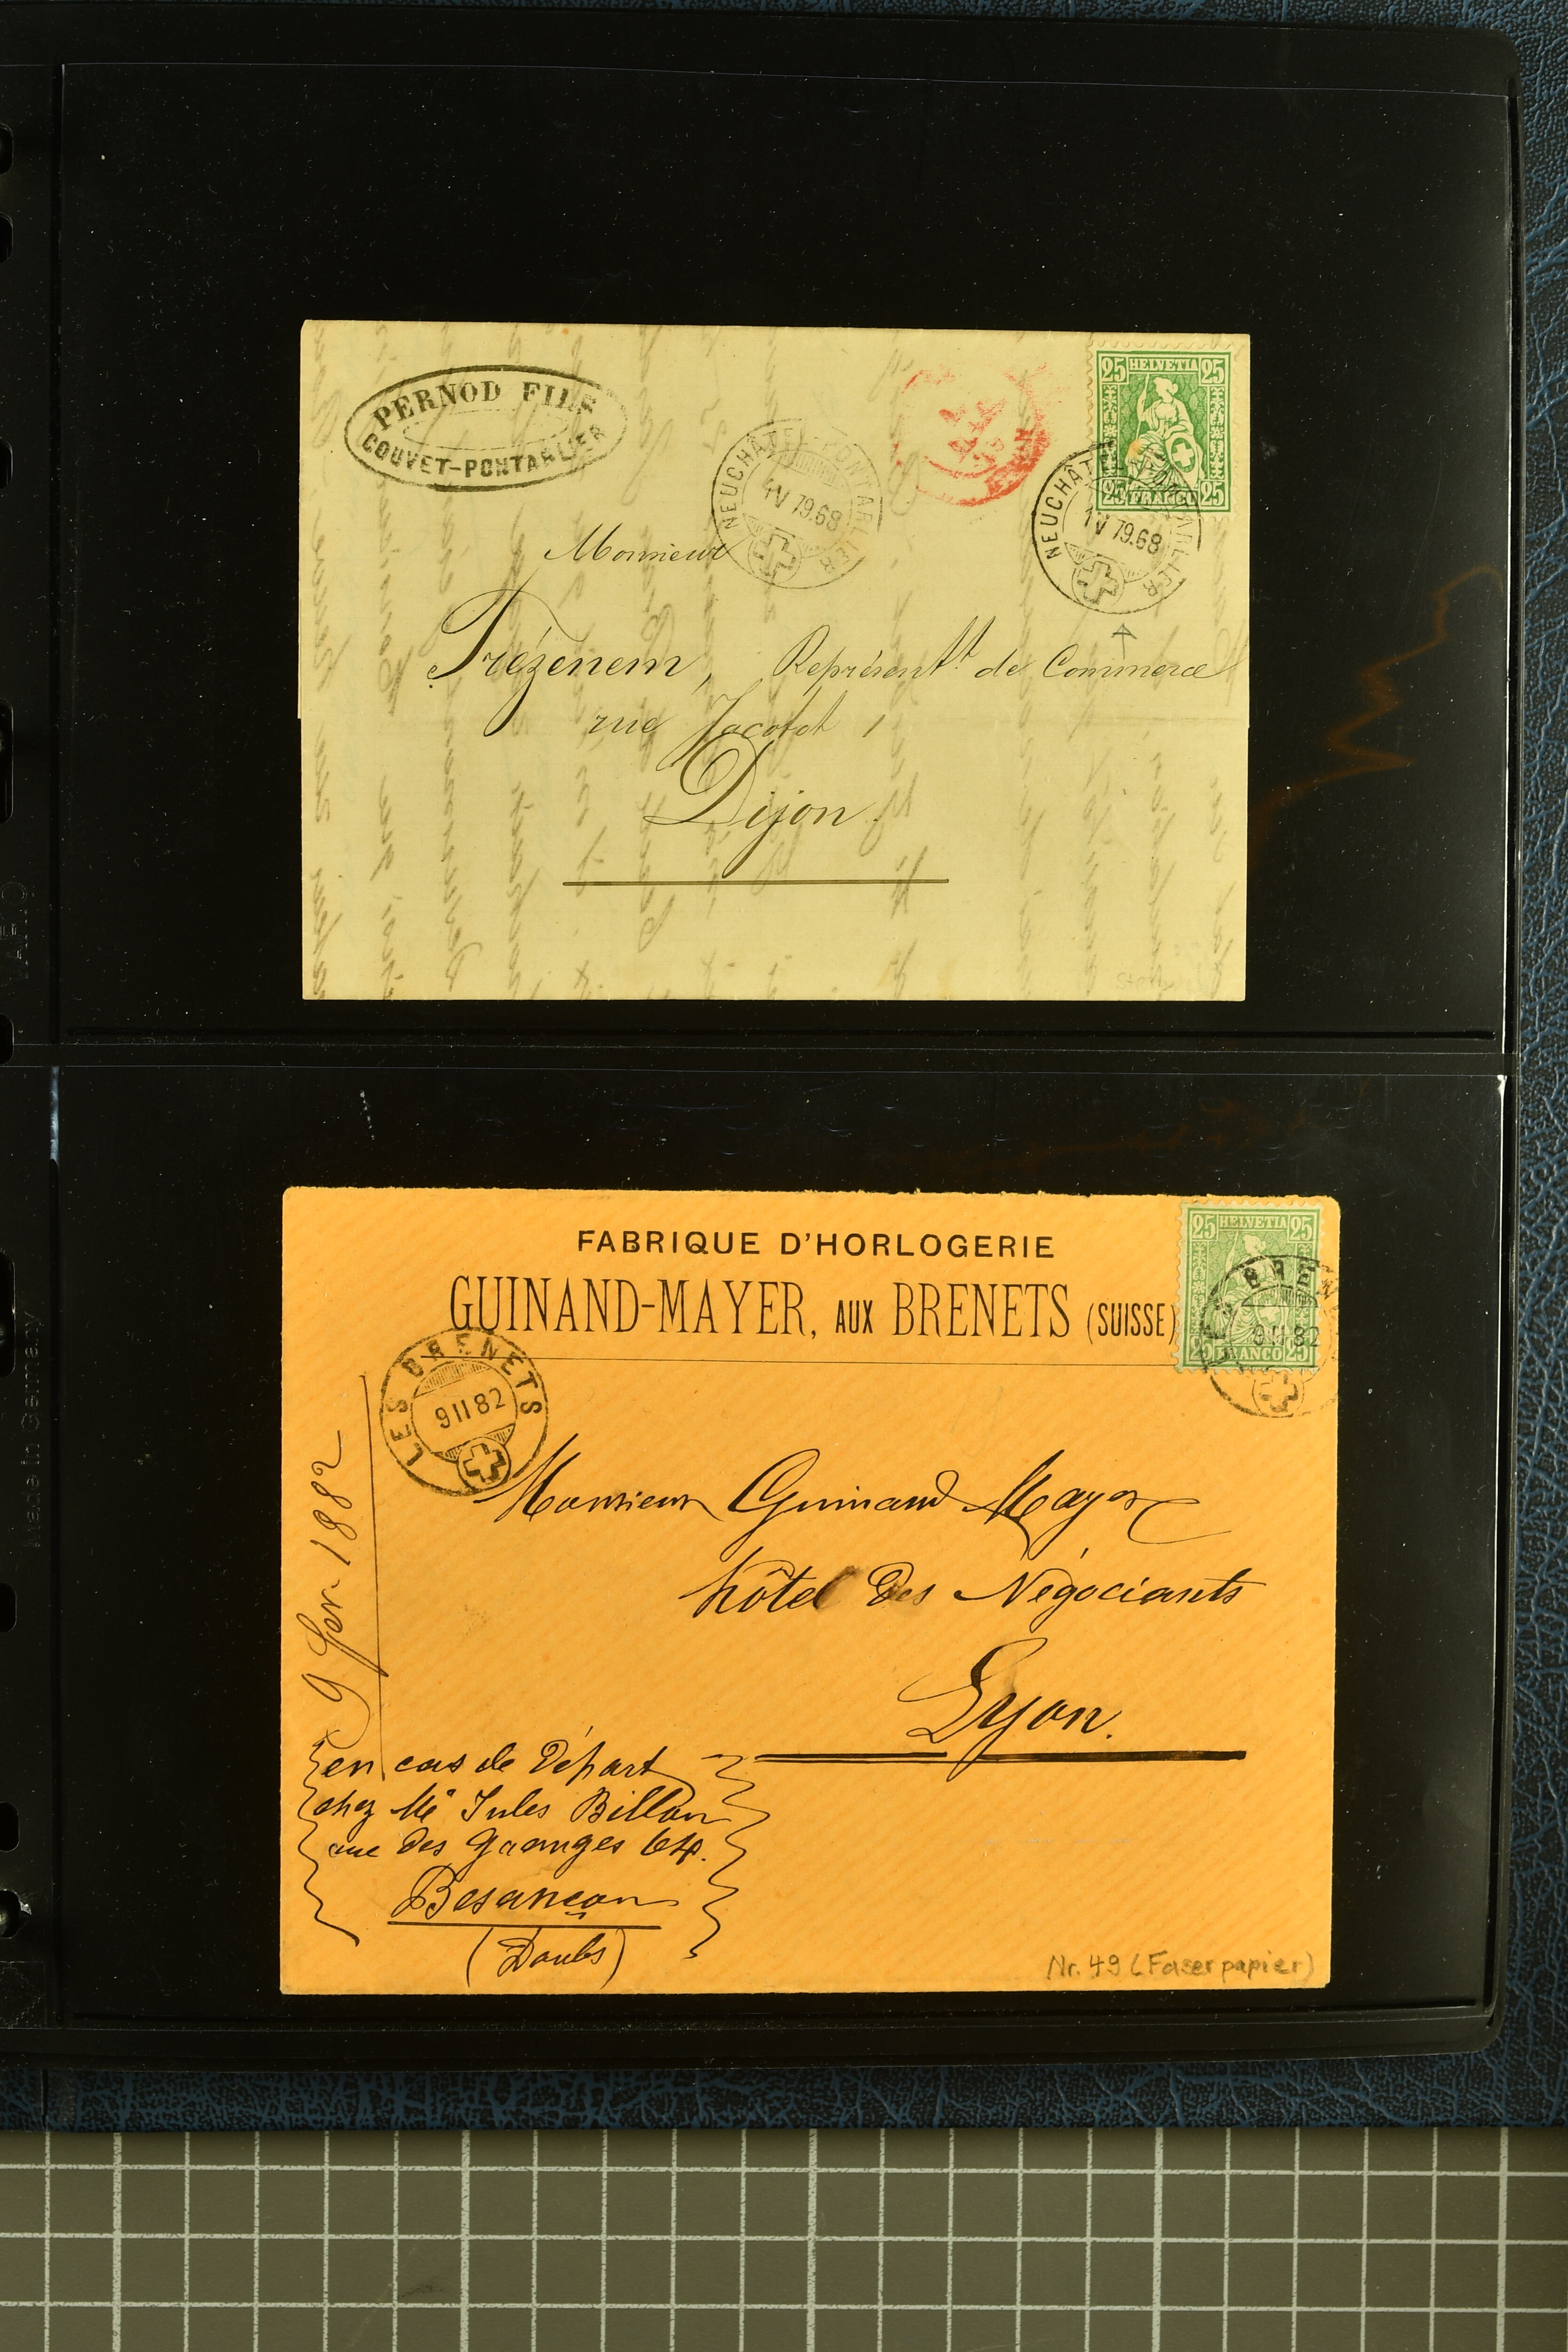 PERNOD FILS
COUVET-PONTARLIER
NEUCHÂTEL PONTARLIER
1 V 79.68
25 HELVETIA 25
25 FRANCO 25
NEUCHÂTEL PONTARLIER
1 V 79.68
Monsieur
Trézenem, Représentt. de Commerce
rue Jacotot 1
Dijon.
FABRIQUE D'HORLOGERIE
GUINAND-MAYER, AUX BRENETS (SUISSE)
25 HELVETIA 25
25 FRANCO 25
BREN
9 II 82
LES BRENETS
9 II 82
9 fev. 1882
Monsieur Guinand Mayer
hôtel des Négociants
Lyon.
en cas de Départ
chez Mr Jules Billon
rue des Granges 64.
Besançon
(Doubs)
Nr. 49 (Faserpapier)
Made in Germany